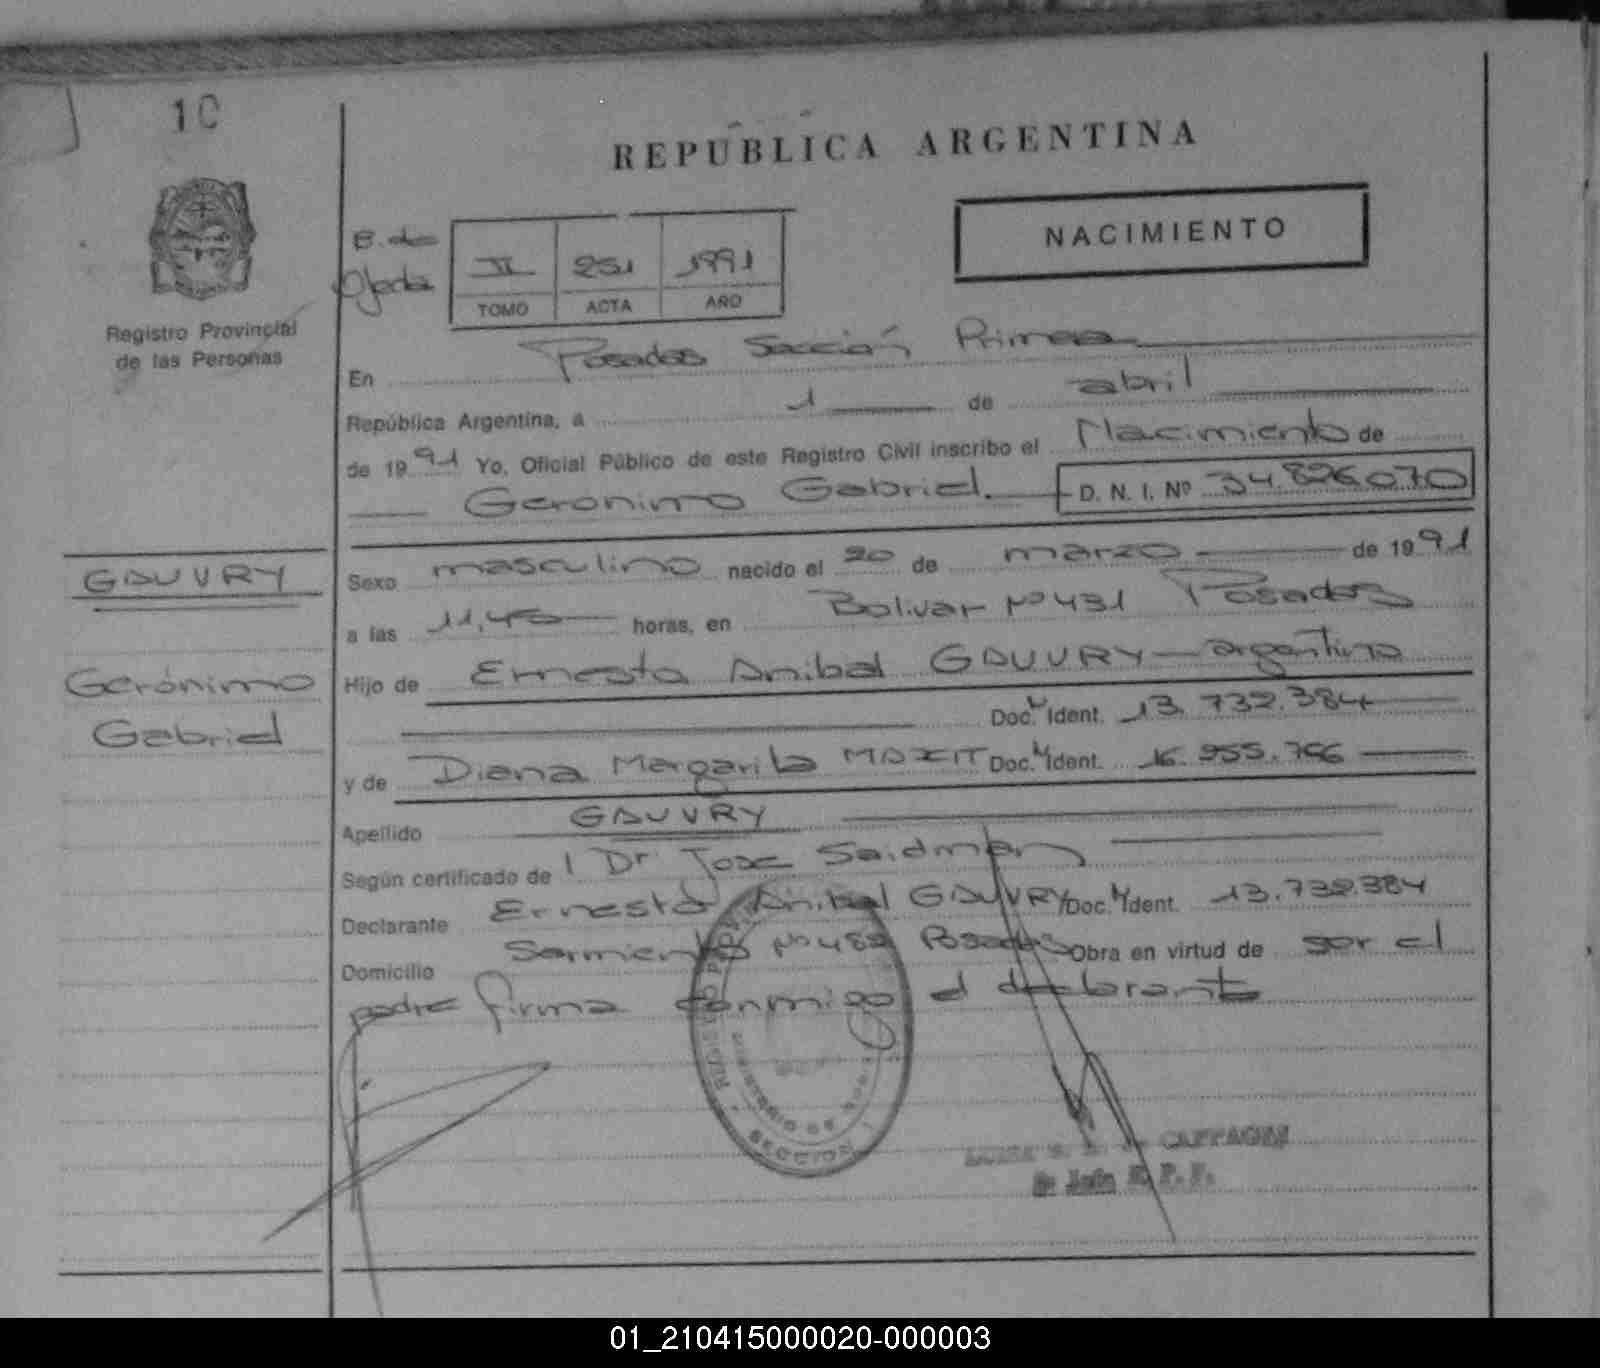 10
REPUBLICA ARGENTINA
NACIMIENTO
Registro Provincial
de las Personas
E. de
Ojeda
II 251 1991
TOMO ACTA AÑO
En Posadas Sección Primera
República Argentina, a 1 de abril
de 1991 Yo, Oficial Público de este Registro Civil inscribo el Nacimiento de
Gerónimo Gabriel. D. N. I. Nº 34.826070
GAUVRY
Gerónimo
Gabriel
Sexo masculino nacido el 20 de marzo de 1991
a las 11,45 horas, en Bolivar Nº 431 Posadas
Hijo de Ernesto Anibal GAUVRY argentino
Doc. Ident. 13.732.384
y de Diana Margarita MAXIT Doc. Ident. 16.955.766
Apellido GAUVRY
Según certificado de Dr José Saidman
Declarante Ernesto Anibal GAUVRY Doc. Ident. 13.732.384
Domicilio Sarmiento Nº 489 Posadas Obra en virtud de ser el
padre firma conmigo el declarante
MINISTERIO DE
SECCION
CAFFAGNI
Jefe R. P. P.
01_210415000020-000003